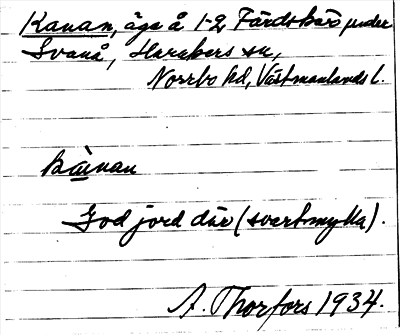 Kanan, äga å 1-2 Färdsbäs under
Svanå, Harakers sn,
Norrbo hd, Västmanlands l.
kànan
God jord där (svartmylla).
A. Thorfors 1934.